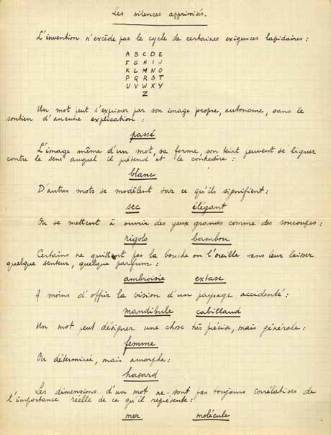 Les silences apprivoisés.
L'invention n'excède pas le cycle de certaines exigences lapidaires :
A B C D E
F G H I J
K L M N O
P Q R S T
U V W X Y
Z
Un mot peut s'exprimer par son image propre, autonome, sans le
soutien d'aucune explication :
passé
L'image même d'un mot, sa forme, son teint peuvent se liguer
contre le sens auquel il prétend et le contredire :
blanc
D'autres mots se modèlent sur ce qu'ils signifient :
sec élégant
Ou se mettent à ouvrir des yeux grands comme des soucoupes :
rigolo bambou
Certains ne quittent pas la bouche ou l'oreille sans leur laisser
quelque senteur, quelque parfum :
ambroisie extase
A moins d'offrir la vision d'un paysage accidenté :
mandibule cabillaud
Un mot peut désigner une chose très précise, mais générale :
femme
Ou déterminé, mais amorphe :
hasard
Les dimensions d'un mot ne sont pas toujours corrélatives de
l'importance réelle de ce qu'il représente :
mer molécule